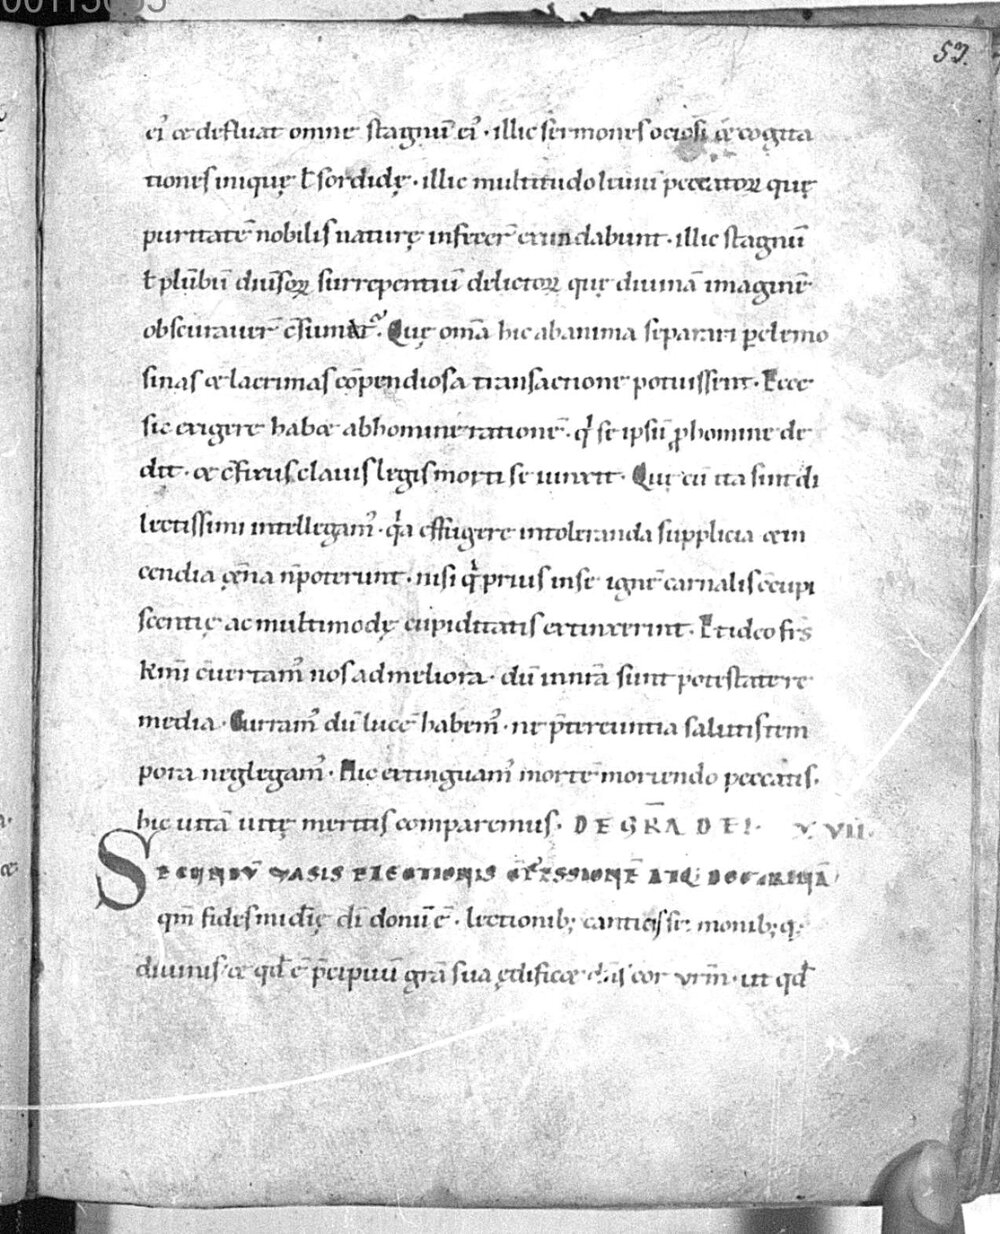 53.
ei᾿ & defluat omne stagnū ei᾿ · illic sermones ociosi & cogita
tiones inique̜ ł sordide̜ · illic multitudo leuiū peccatoꝝ que̜
puritatē nobilis nature̜ inficeř exundabunt · illic stagnū
ł plūbū diuisoꝝ surrepentiū delictoꝝ que̜ diuinā imaginē
obscurauer̄ Que̜ om̄a hic ab anima separari ꝑ elemo
sinas & lacrimas cōpendiosa transactione potuissent · Ecce
sic exigere hab& ab homine rationē · q̇ se ipsū ꝓ homine de
dit · & c̄fixus clauis legis morti se uinxit · Que̜ cū ita sint di
lectissimi intellegam᾿ · q̇a effugere intoleranda supplicia & in
cendia e̜t̄na n̄ poterunt · nisi q̇ prius in se ignē carnalis c̄cupi
scentie̜ ac multimode̜ cupiditatis extinxerint · Et ideo fr̄s
km̄i c̄uertam᾿ nos ad meliora · dū in nr̄a sunt potestate re
media · Curram᾿ dū lucē habem᾿ · ne p̄tereuntia salutis tem
pora neglegam᾿ · Hic extinguam᾿ mortē moriendo peccatis ·
hic uitā uite̜ meritis comparemus · DE GR̄A DEI · XVII ·
SECUNDŪ VASIS ELECTIONIS ATQ: DOCTRINĀ
qm̄ fides di donū ē · lectionib; canticis sermonib; q;
diuinis & qd̄ ē p̄cipuū gr̄a sua e̜dific& cor vrm̄ · ut qd̄